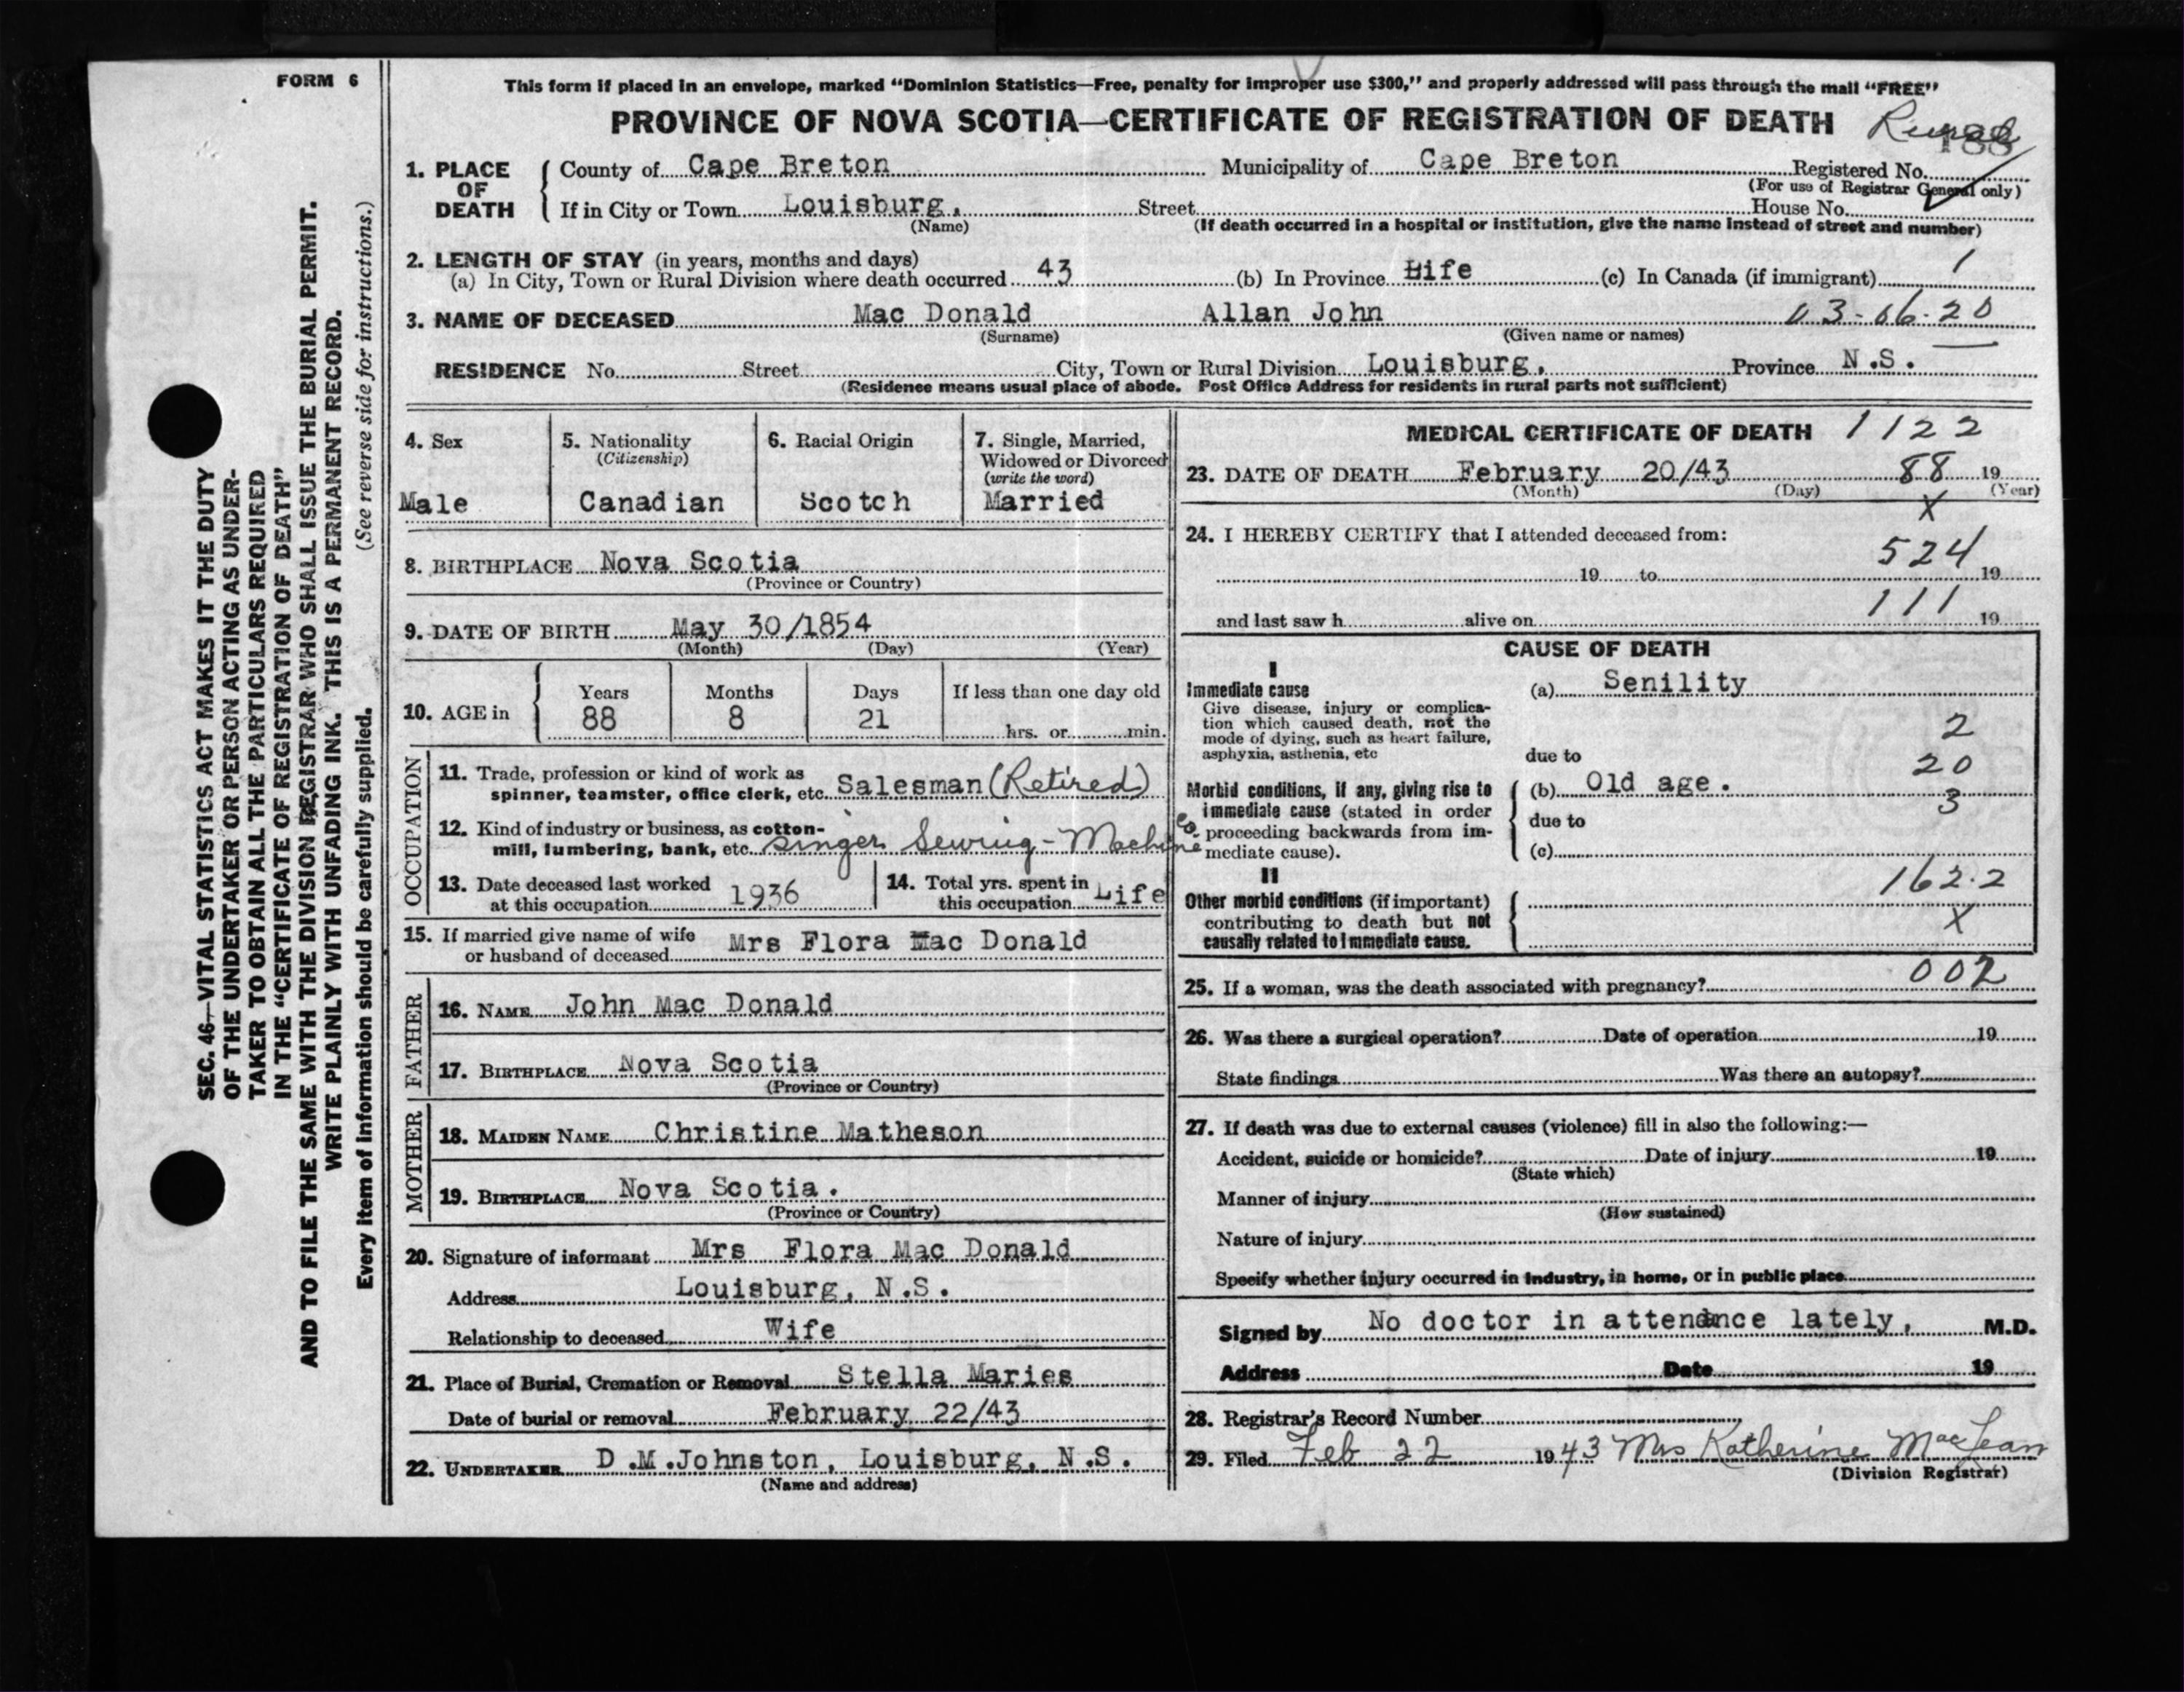 FORM 6
This form if placed in an envelope, marked "Dominion Statistics—Free, penalty for improper use $300," and properly addressed will pass through the mail "FREE"
PROVINCE OF NOVA SCOTIA—CERTIFICATE OF REGISTRATION OF DEATH
Rural
188
1. PLACE OF DEATH
County of Cape Breton Municipality of Cape Breton Registered No.
(For use of Registrar General only)
If in City or Town Louisburg, Street House No.
(Name) (If death occurred in a hospital or institution, give the name instead of street and number)
2. LENGTH OF STAY (in years, months and days)
(a) In City, Town or Rural Division where death occurred 43 (b) In Province Life (c) In Canada (if immigrant) 1
3. NAME OF DECEASED Mac Donald Allan John 03-06-20
(Surname) (Given name or names)
RESIDENCE No. Street City, Town or Rural Division Louisburg. Province N.S.
(Residence means usual place of abode. Post Office Address for residents in rural parts not sufficient)
4. Sex
Male
5. Nationality
(Citizenship)
Canadian
6. Racial Origin
Scotch
7. Single, Married,
Widowed or Divorced
(write the word)
Married
8. BIRTHPLACE Nova Scotia
(Province or Country)
9. DATE OF BIRTH May 30/1854
(Month) (Day) (Year)
10. AGE in
Years Months Days If less than one day old
88 8 21 hrs. or min.
OCCUPATION
11. Trade, profession or kind of work as
spinner, teamster, office clerk, etc. Salesman (Retired)
12. Kind of industry or business, as cotton-
mill, lumbering, bank, etc. Singer Sewing-Machine Co.
13. Date deceased last worked
at this occupation 1936
14. Total yrs. spent in
this occupation Life
15. If married give name of wife
or husband of deceased Mrs Flora Mac Donald
FATHER
16. NAME John Mac Donald
17. BIRTHPLACE Nova Scotia
(Province or Country)
MOTHER
18. MAIDEN NAME Christine Matheson
19. BIRTHPLACE Nova Scotia.
(Province or Country)
20. Signature of informant Mrs Flora Mac Donald
Address Louisburg, N.S.
Relationship to deceased Wife
21. Place of Burial, Cremation or Removal Stella Maries
Date of burial or removal February 22/43
22. UNDERTAKER D.M.Johnston, Louisburg, N.S.
(Name and address)
MEDICAL CERTIFICATE OF DEATH 1122
23. DATE OF DEATH February 20/43 88 19
(Month) (Day) (Year)
X
24. I HEREBY CERTIFY that I attended deceased from:
524
19 to 19
111
and last saw h alive on 19
CAUSE OF DEATH
I
Immediate cause
Give disease, injury or complica-
tion which caused death, not the
mode of dying, such as heart failure,
asphyxia, asthenia, etc
(a) Senility
2
due to
20
Morbid conditions, if any, giving rise to
immediate cause (stated in order
proceeding backwards from im-
mediate cause).
(b) Old age.
3
due to
(c)
II
162.2
Other morbid conditions (if important)
contributing to death but not
causally related to immediate cause.
X
002
25. If a woman, was the death associated with pregnancy?
26. Was there a surgical operation? Date of operation 19
State findings Was there an autopsy?
27. If death was due to external causes (violence) fill in also the following:—
Accident, suicide or homicide? Date of injury 19
(State which)
Manner of injury
(How sustained)
Nature of injury
Specify whether injury occurred in industry, in home, or in public place
Signed by No doctor in attendance lately, M.D.
Address Date 19
28. Registrar's Record Number
29. Filed Feb 22 1943 Mrs Katherine MacLean
(Division Registrar)
SEC. 46—VITAL STATISTICS ACT MAKES IT THE DUTY
OF THE UNDERTAKER OR PERSON ACTING AS UNDER-
TAKER TO OBTAIN ALL THE PARTICULARS REQUIRED
IN THE "CERTIFICATE OF REGISTRATION OF DEATH"
AND TO FILE THE SAME WITH THE DIVISION REGISTRAR WHO SHALL ISSUE THE BURIAL PERMIT.
WRITE PLAINLY WITH UNFADING INK. THIS IS A PERMANENT RECORD.
Every item of information should be carefully supplied. (See reverse side for instructions.)